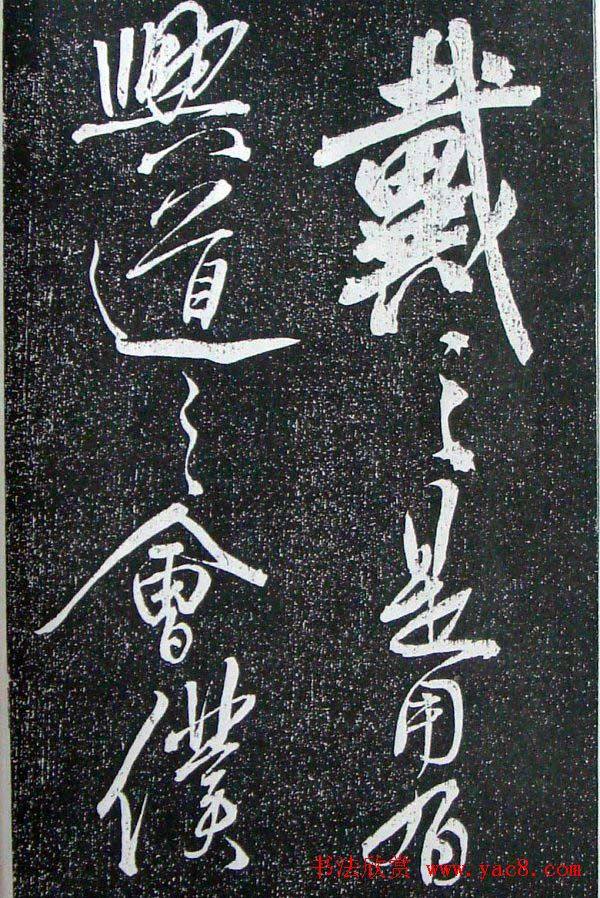 戴之是用有
興道之會僕
书法欣赏 www.yac8.com